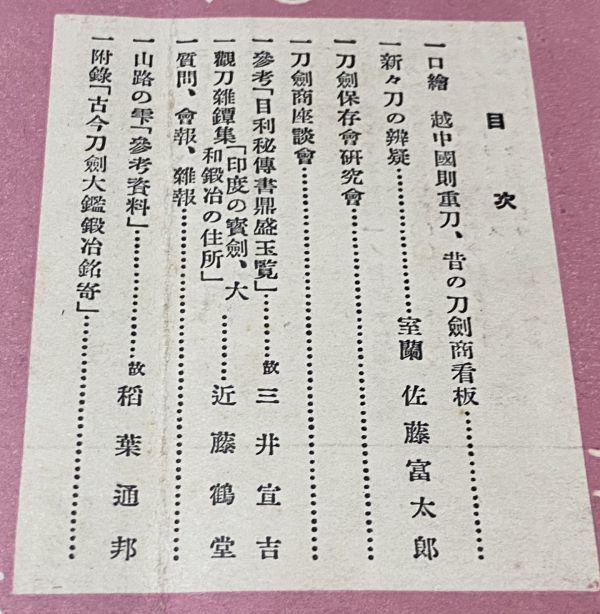 目次
一口繪 越中國則重刀、昔の刀劍商看板…………
一新々刀の辨疑…………室蘭 佐藤富太郎
一刀劍保存會研究會…………
一刀劍商座談會…………
一參考「目利秘傳書鼎盛玉覽」…………故 三井宣吉
一觀刀雜鐔集「印度の寳劍、大和鍛冶の住所」…………近藤鶴堂
一質問、會報、雜報…………
一山路の雫「參考資料」…………故 稻葉通邦
一附錄「古今刀劍大鑑鍛冶銘寄」…………